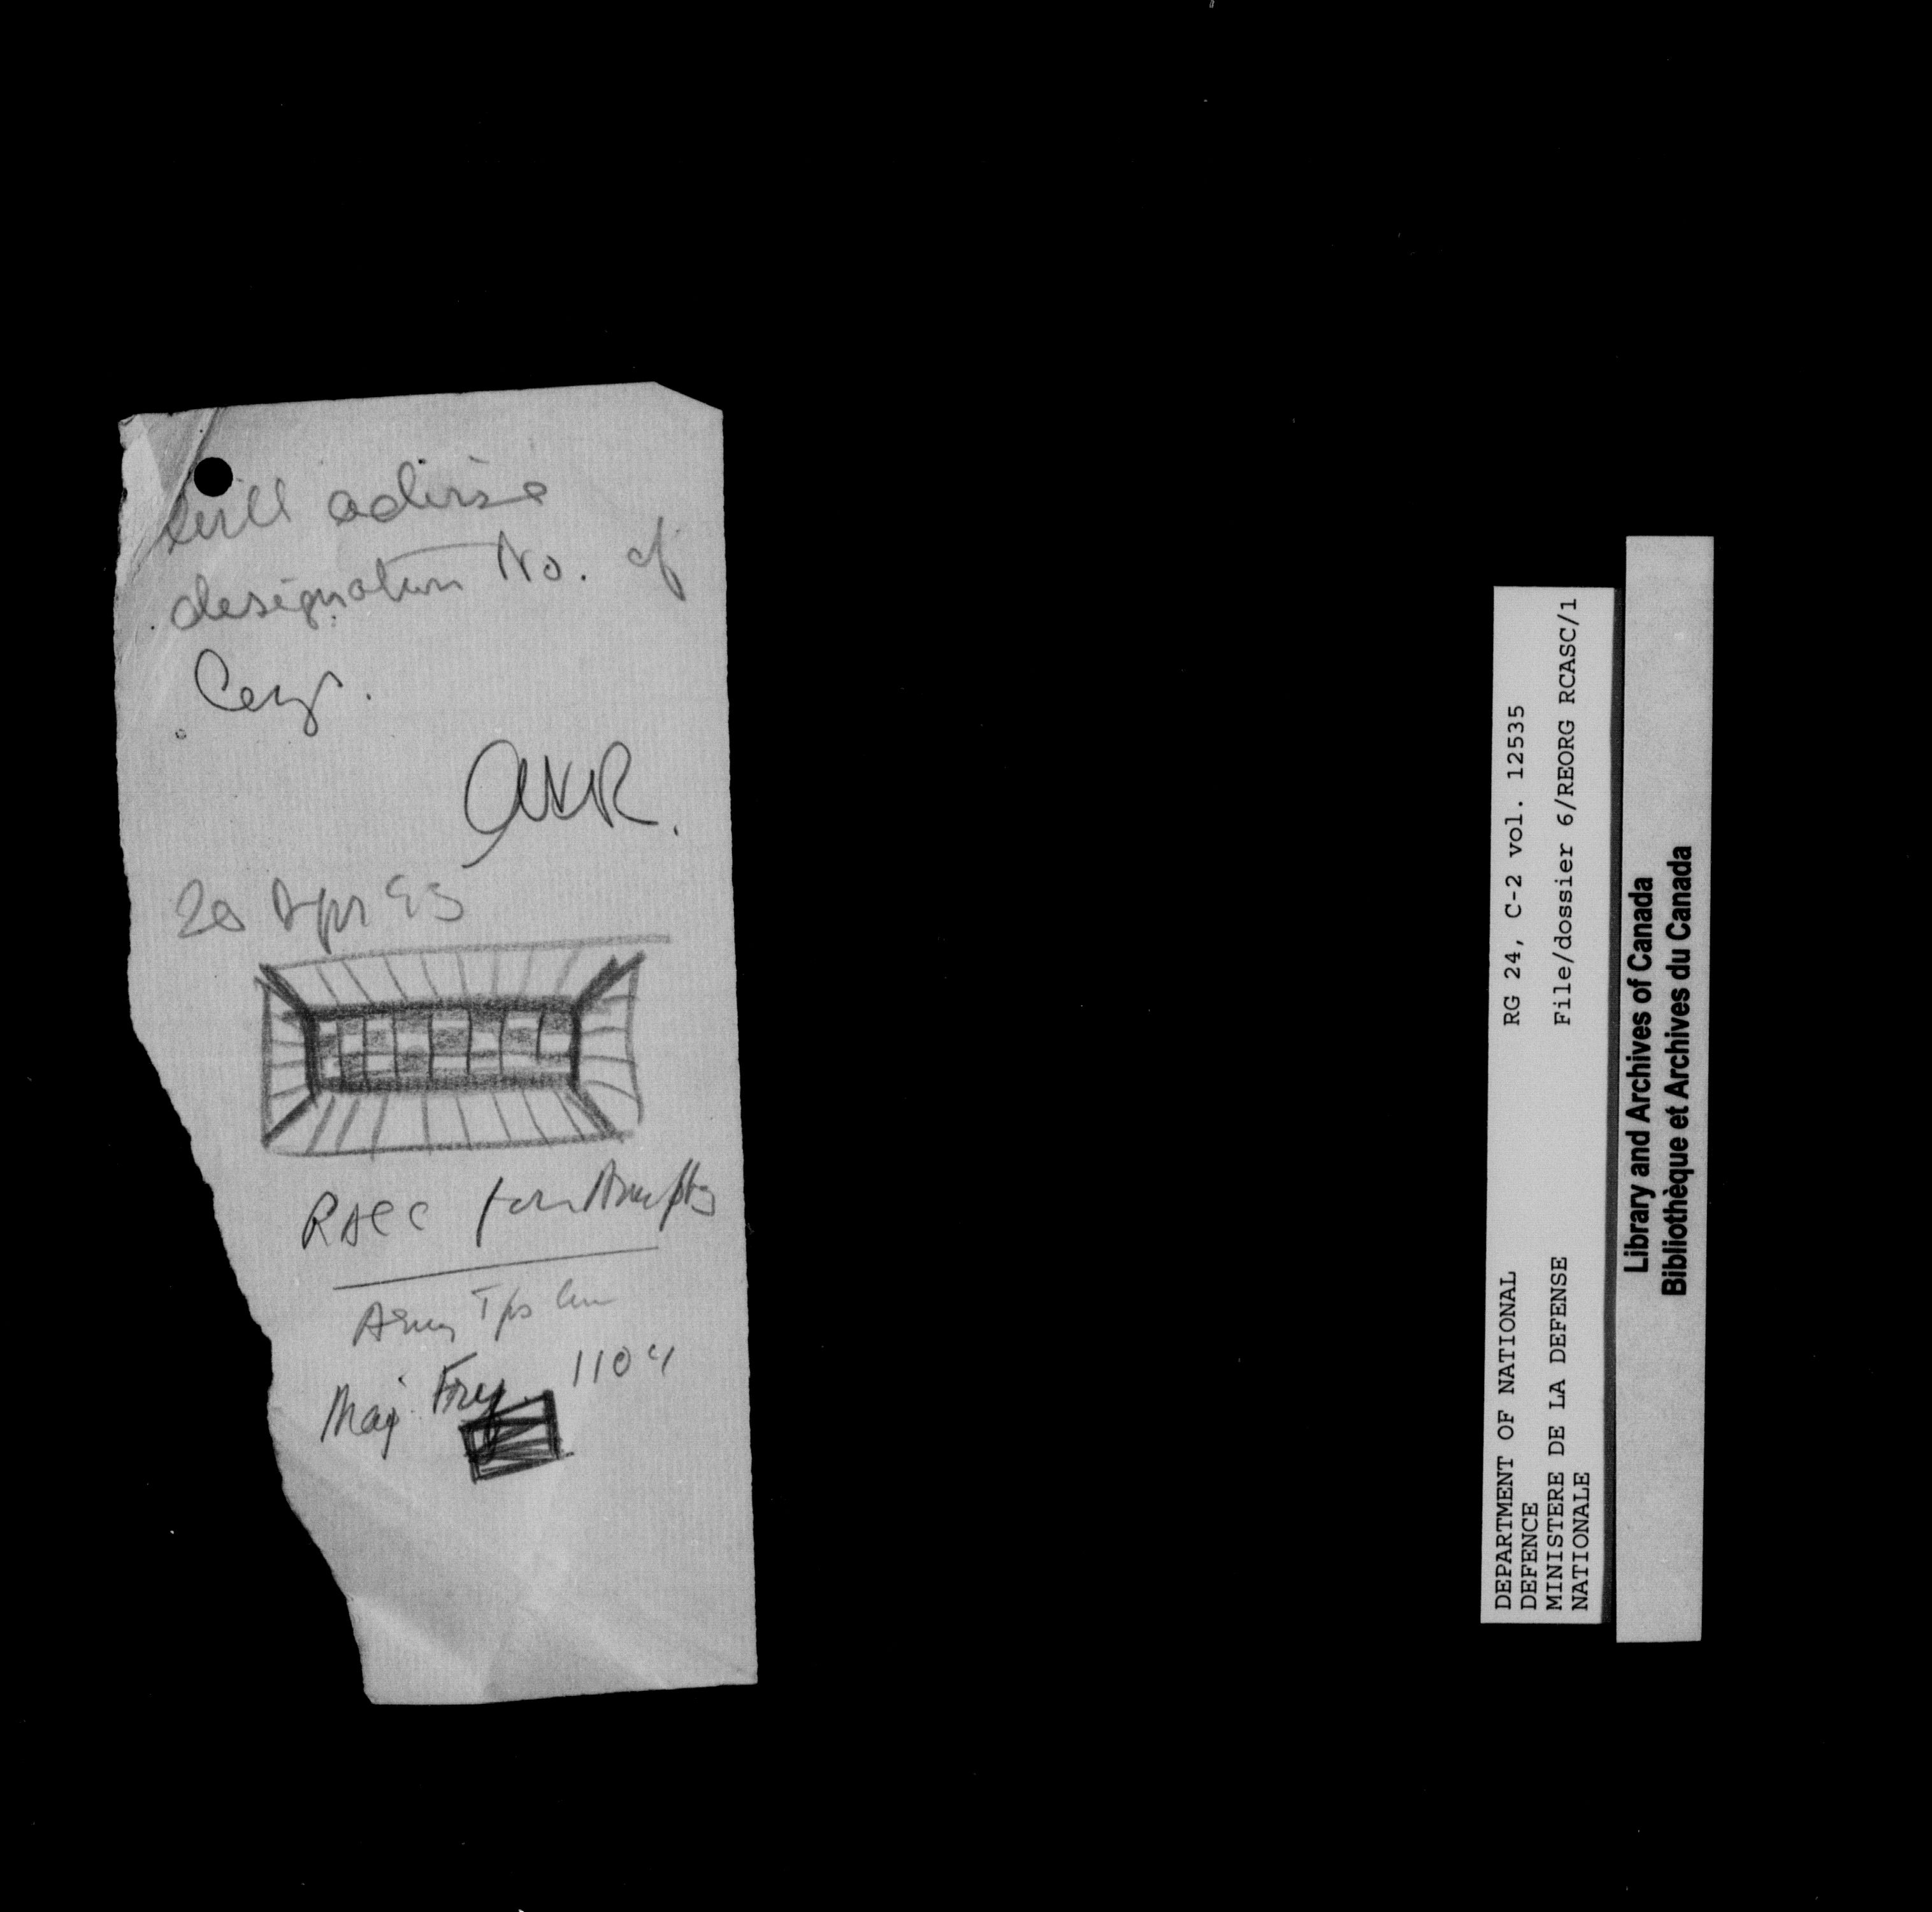 will advise
designation No. of
Coy.
20 Apr 43
Army Tps
Maj. Frey 1104
DEPARTMENT OF NATIONAL
DEFENCE
MINISTERE DE LA DEFENSE
NATIONALE
RG 24, C-2 vol. 12535
File/dossier 6/REORG RCASC/1
Library and Archives of Canada
Bibliothèque et Archives du Canada